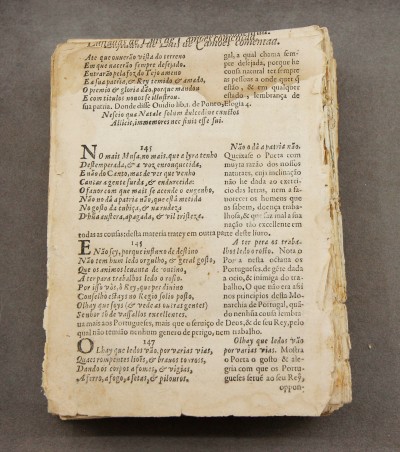 Lusiadas de Luis de Camões comentada.
Ate que ouverão vista do terreno
Em que nacerào sempre desejado.
Entrarão pela foz do Tejo ameno
E a sua patria, & Rey temido & amado,
O premio & gloria dão, porque mandou
E com titulos novos se illustrou.
sua patria. Donde disse Ovidio lib. 1. de Ponto, Elogia 4.
Nescio qua Natale solum dulcedine cunctos
Allicit, immemores nec sinit esse sui.
gal, a qual choma sempre
desejada, porque he
cousa natural ter sempre
as pessoas a que onde
&, & em qualquer
estado, lembrança de
145
NO mais Musa, no mais, que a lyra tenho
Destemperada, & a voz enrouquecida,
E não do Canto, mas de ver que venho
Cantar agente surda, & endurecida:
O favor com que mais se atende o engenho,
Não no dá a patria não, que está metida
No gosto da cubiça, & na rudeza
Dhũa austera, apagada, & vil tristeza.
Não o dà a patria não.
Queixase o Poeta com
muyta razão dos nossos
naturaes, cuja inclinação
não he dada ao exercicio
das letras, nem a favorecer
os homens que
as sabem, doença trabalhosa,
& que faz mal a sua
nação tão excellente em
todas as cousas: desta materia tratey em outra parte deste livro.
145
E Não sey, porque influxo de destino
Não tem hum ledo orgulho, & geral gosto,
Que os animos levanta de contino,
A ter para trabalhos ledo o rosto.
Por isso vòs, ó Rey, que por divino
Conselho estays no Regio solio posto,
Olhay que seys (& vede as outras gentes)
Senhor só de vassallos excellentes.
A ter pera os trabalhos
ledo o rosto. Nota o
Poeta nesta octava os
Portugueses, de gẽte dada
a ocio, & inimiga do trabalho,
O que não era assi
nos principios desta Monarchia
de Portugal, quãdo
nenhũa cousa lembrava
mais aos Portugueses, mais que o serviço de Deos, & de seu Rey, pelo
qual não temião nenhum genero de perigo, nem trabalho.
147
OLhay que ledos vão, por varias vias,
Quaes rompentes liões, & bravos touros,
Dando os corpos a fomes, & vigias,
A ferro, a fogo, a setas, & pilouros,
Olhay que ledos vão
por varias vias. Mostra
o Poeta o gosto & alegria
com que os Portugueses
servẽ ao seu Rey,
oppon-